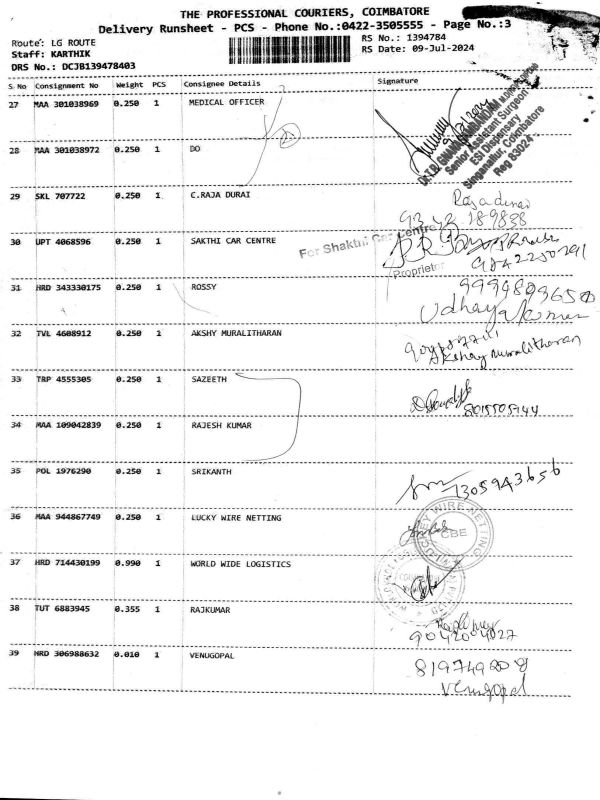 THE PROFESSIONAL COURIERS, COIMBATORE
Delivery Runsheet - PCS - Phone No.:0422-3505555 - Page No.:3
Route: LG ROUTE
RS No.: 1394784
Staff: KARTHIK
RS Date: 09-Jul-2024
DRS No.: DCJB139478403
S.No Consignment No Weight PCS Consignee Details Signature
27 MAA 301038969 0.250 1 MEDICAL OFFICER
Senior Assistant Surgeon
ESI Dispensary
Singanallur, Coimbatore
28 MAA 301038972 0.250 1 DO
29 SKL 707722 0.250 1 C.RAJA DURAI
Rajadurai
9342 189838
30 UPT 4068596 0.250 1 SAKTHI CAR CENTRE
For Shakthi Car Centre
Proprietor
9842250791
31 HRD 343330175 0.250 1 ROSSY
Udhayakumar
32 TVL 4608912 0.250 1 AKSHY MURALITHARAN
Akshay Muralitharan
33 TRP 4555305 0.250 1 SAZEETH
34 MAA 109042839 0.250 1 RAJESH KUMAR
35 POL 1976290 0.250 1 SRIKANTH
7305943656
36 MAA 944867749 0.250 1 LUCKY WIRE NETTING
CBE
37 HRD 714430199 0.990 1 WORLD WIDE LOGISTICS
38 TUT 6883945 0.355 1 RAJKUMAR
9042004027
39 HRD 306988632 0.010 1 VENUGOPAL
Venugopal